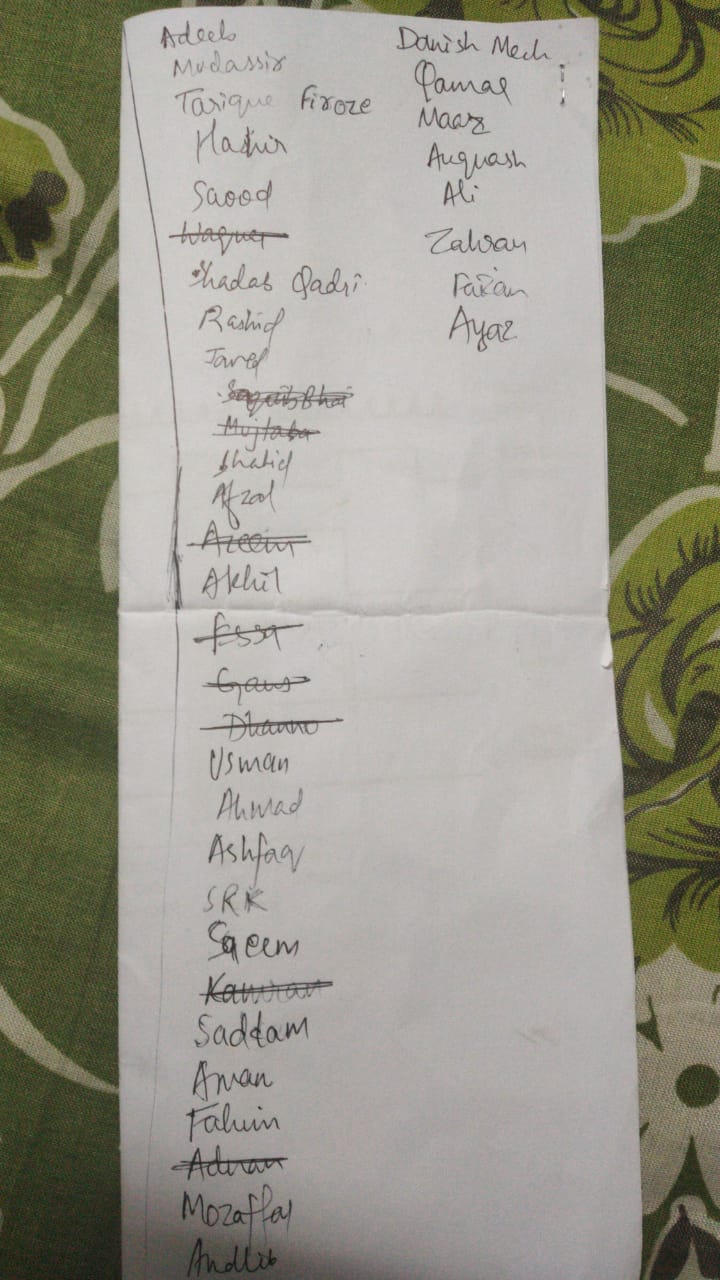 Adeeb
Mudassir
Tarique Firoze
Hashir
Saood
Waquer
Shadab Qadri
Rashid
Javed
Saquib Bhai
Mujtaba
Khalid
Afzal
Azeem
Akhil
Essa
Gaus
Dhanno
Usman
Ahmad
Ashfaq
SRK
Saeem
Kamran
Saddam
Aman
Fahim
Adnan
Mozaffar
Andlib
Danish Mech
Qamar
Maaz
Auquash
Ali
Zahran
Faizan
Ayaz